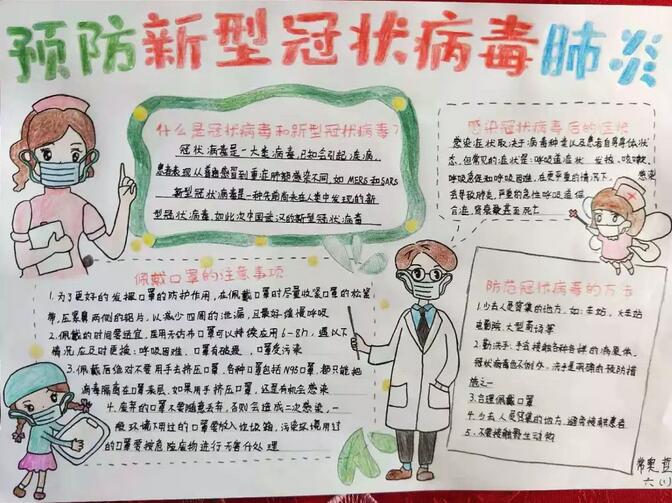 预防新型冠状病毒肺炎
什么是冠状病毒和新型冠状病毒?
冠状病毒是一大类病毒,已知会引起疾病,
患者表现从普通感冒到重症肺部感染不同,如MERS和SARS
新型冠状病毒是一种先前尚未在人类中发现的新
型冠状病毒,如此次中国武汉的新型冠状病毒
感染冠状病毒后的症状
感染症状取决于病毒种类以及患者自身身体状
态,但常见的症状是:呼吸道症状 发热、咳嗽、
呼吸急促和呼吸困难,在更严重的情况下, 感染
会导致肺炎,严重的急性呼吸道综
合症,肾衰竭甚至死亡
佩戴口罩的注意事项
1.为了更好的发挥口罩的防护作用,在佩戴口罩时尽量收紧口罩的松紧
带,压紧鼻两侧的铝片,以减少四周的泄漏,且最好缓慢呼吸
2.佩戴的时间要适宜,医用无纺布口罩可以持续应用6-8h,遇以下
情况应及时更换:呼吸困难,口罩有破损,口罩受污染
3.佩戴后绝对不要用手去挤压口罩,各种口罩包括N95口罩,都只能把
病毒隔离在口罩表层,如果用手挤压口罩,还是有机会感染
4.废弃的口罩不要随意丢弃,否则会造成二次感染,一
般环境下用过的口罩要放入垃圾箱,污染环境用过
的口罩要按危险废物进行无害化处理
防范冠状病毒的方法
1.少去人员密集的地方,如:车站、火车站
电影院,大型商场等
2.勤洗手:手会接触各种各样的病原体,
冠状病毒也不例外,洗手是明确的预防措
施之一
3.合理佩戴口罩
4.少去人员密集的地方,避免接触患者
5.不要接触野生动物
六(1)